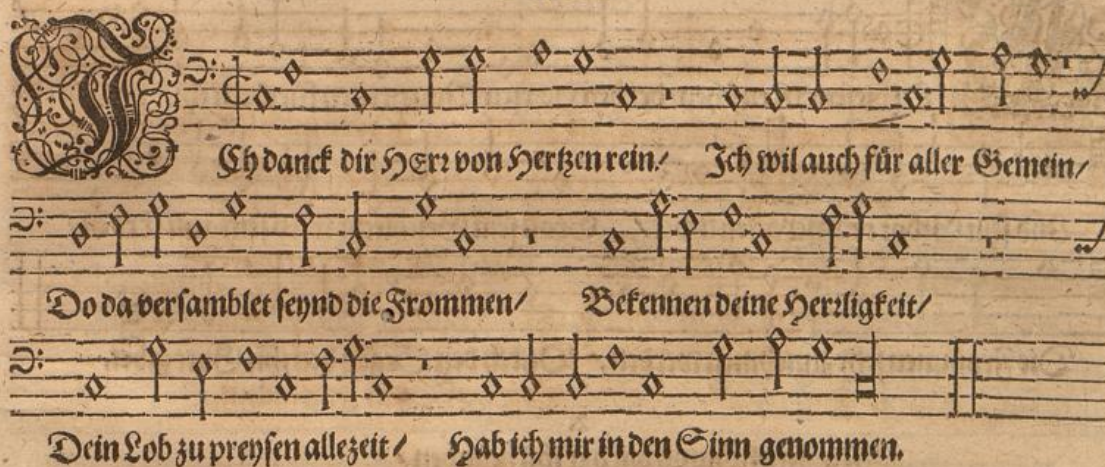 ICh danck dir HErr von Hertzen rein/ Ich wil auch für aller Gemein/
Do da versamblet seynd die Frommen/ Bekennen deine Herrligkeit/
Dein Lob zu preysen allezeit/ Hab ich mir in den Sinn genommen.